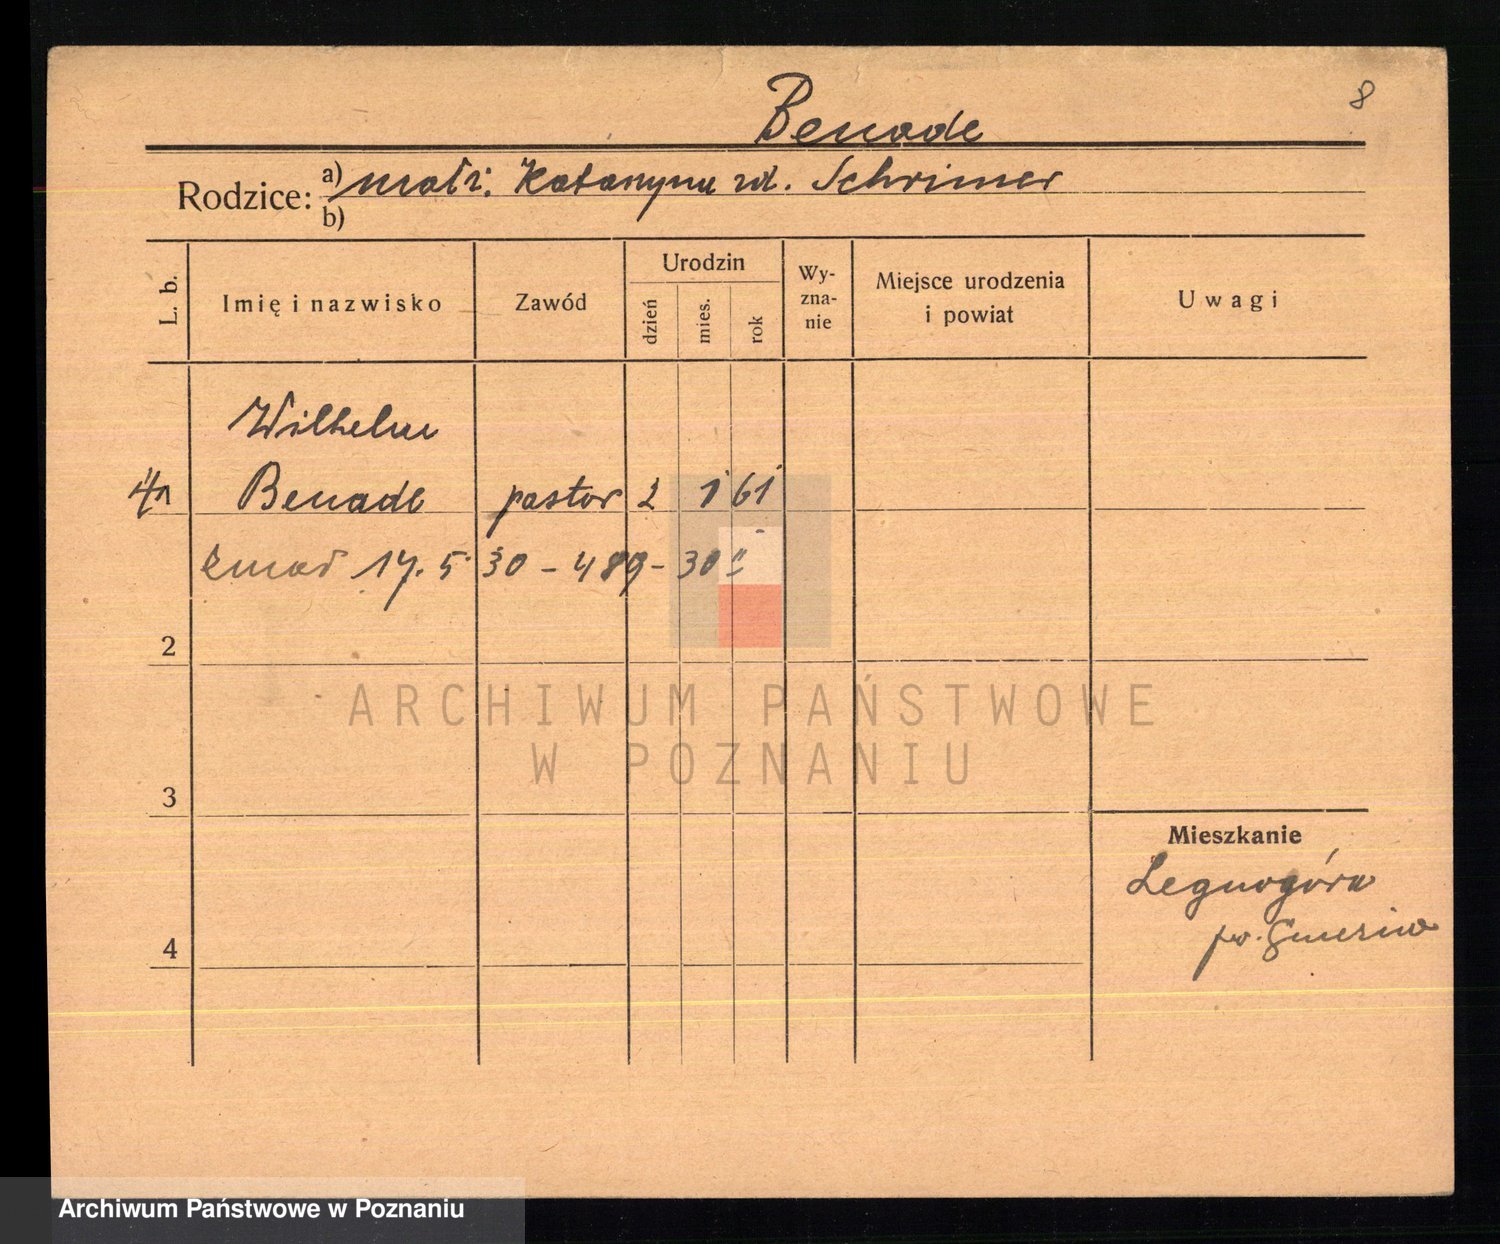 8
Benade
Rodzice: a) małż. Katarzyna zd. Schrimer
b)
L. b. Imię i nazwisko Zawód Urodzin dzień mies. rok Wy-zna-nie Miejsce urodzenia i powiat Uwagi
Wilhelm
1 Benade pastor 2 1 61
zmarł 17. 5 30 - 489 - 30
2
ARCHIWUM PAŃSTWOWE
W POZNANIU
3
Mieszkanie
Legnogóra
4
Archiwum Państwowe w Poznaniu